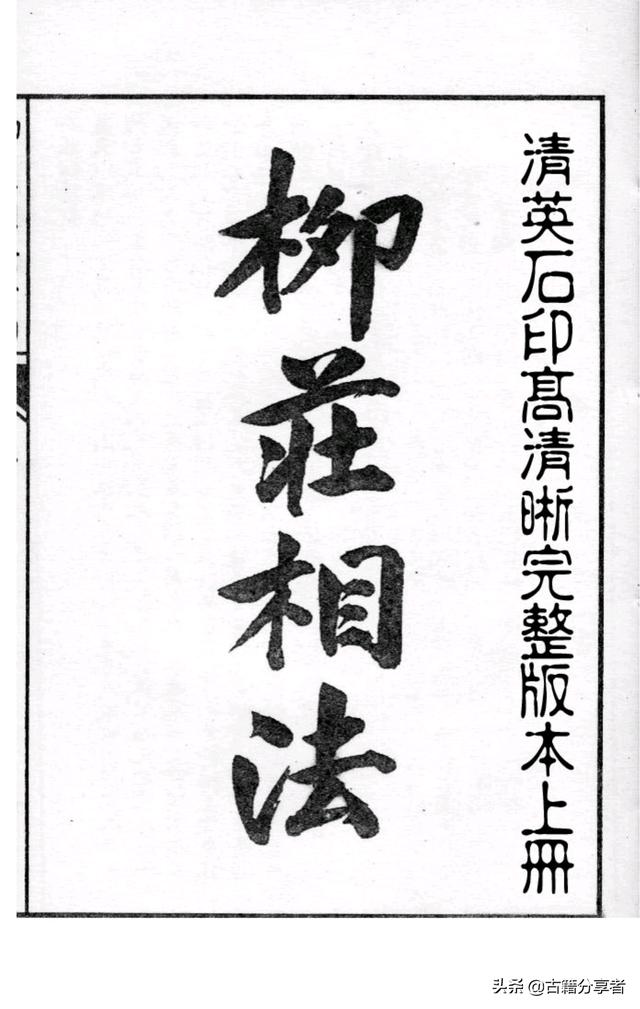 清英石印高清晰完整版本上冊
柳莊相法
头条 @古籍分享者